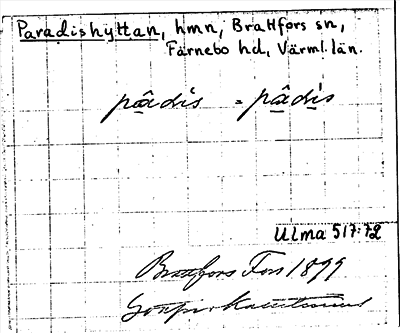 Paradishyttan, hmn, Brattfors sn,
Färnebo hd, Värml. län.
pâdis = pâdis
Ulma 517:72
Brattfors Fors 1899